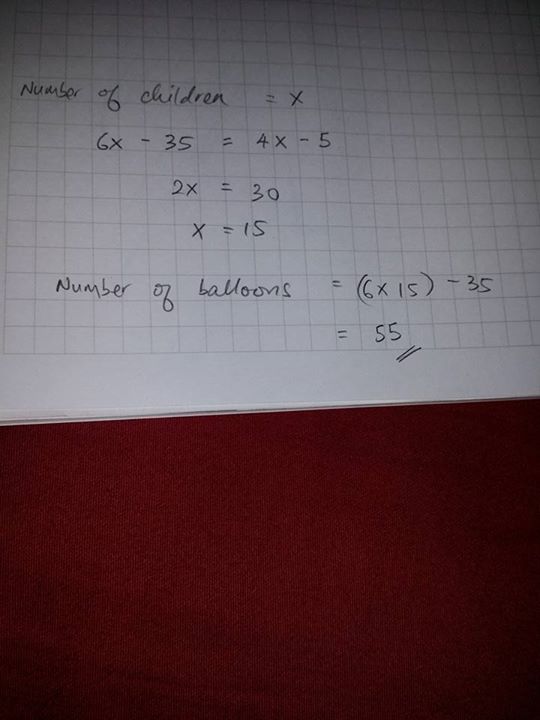 Number of children = x
6x - 35 = 4x - 5
2x = 30
x = 15
Number of balloons = (6 x 15) - 35
= 55